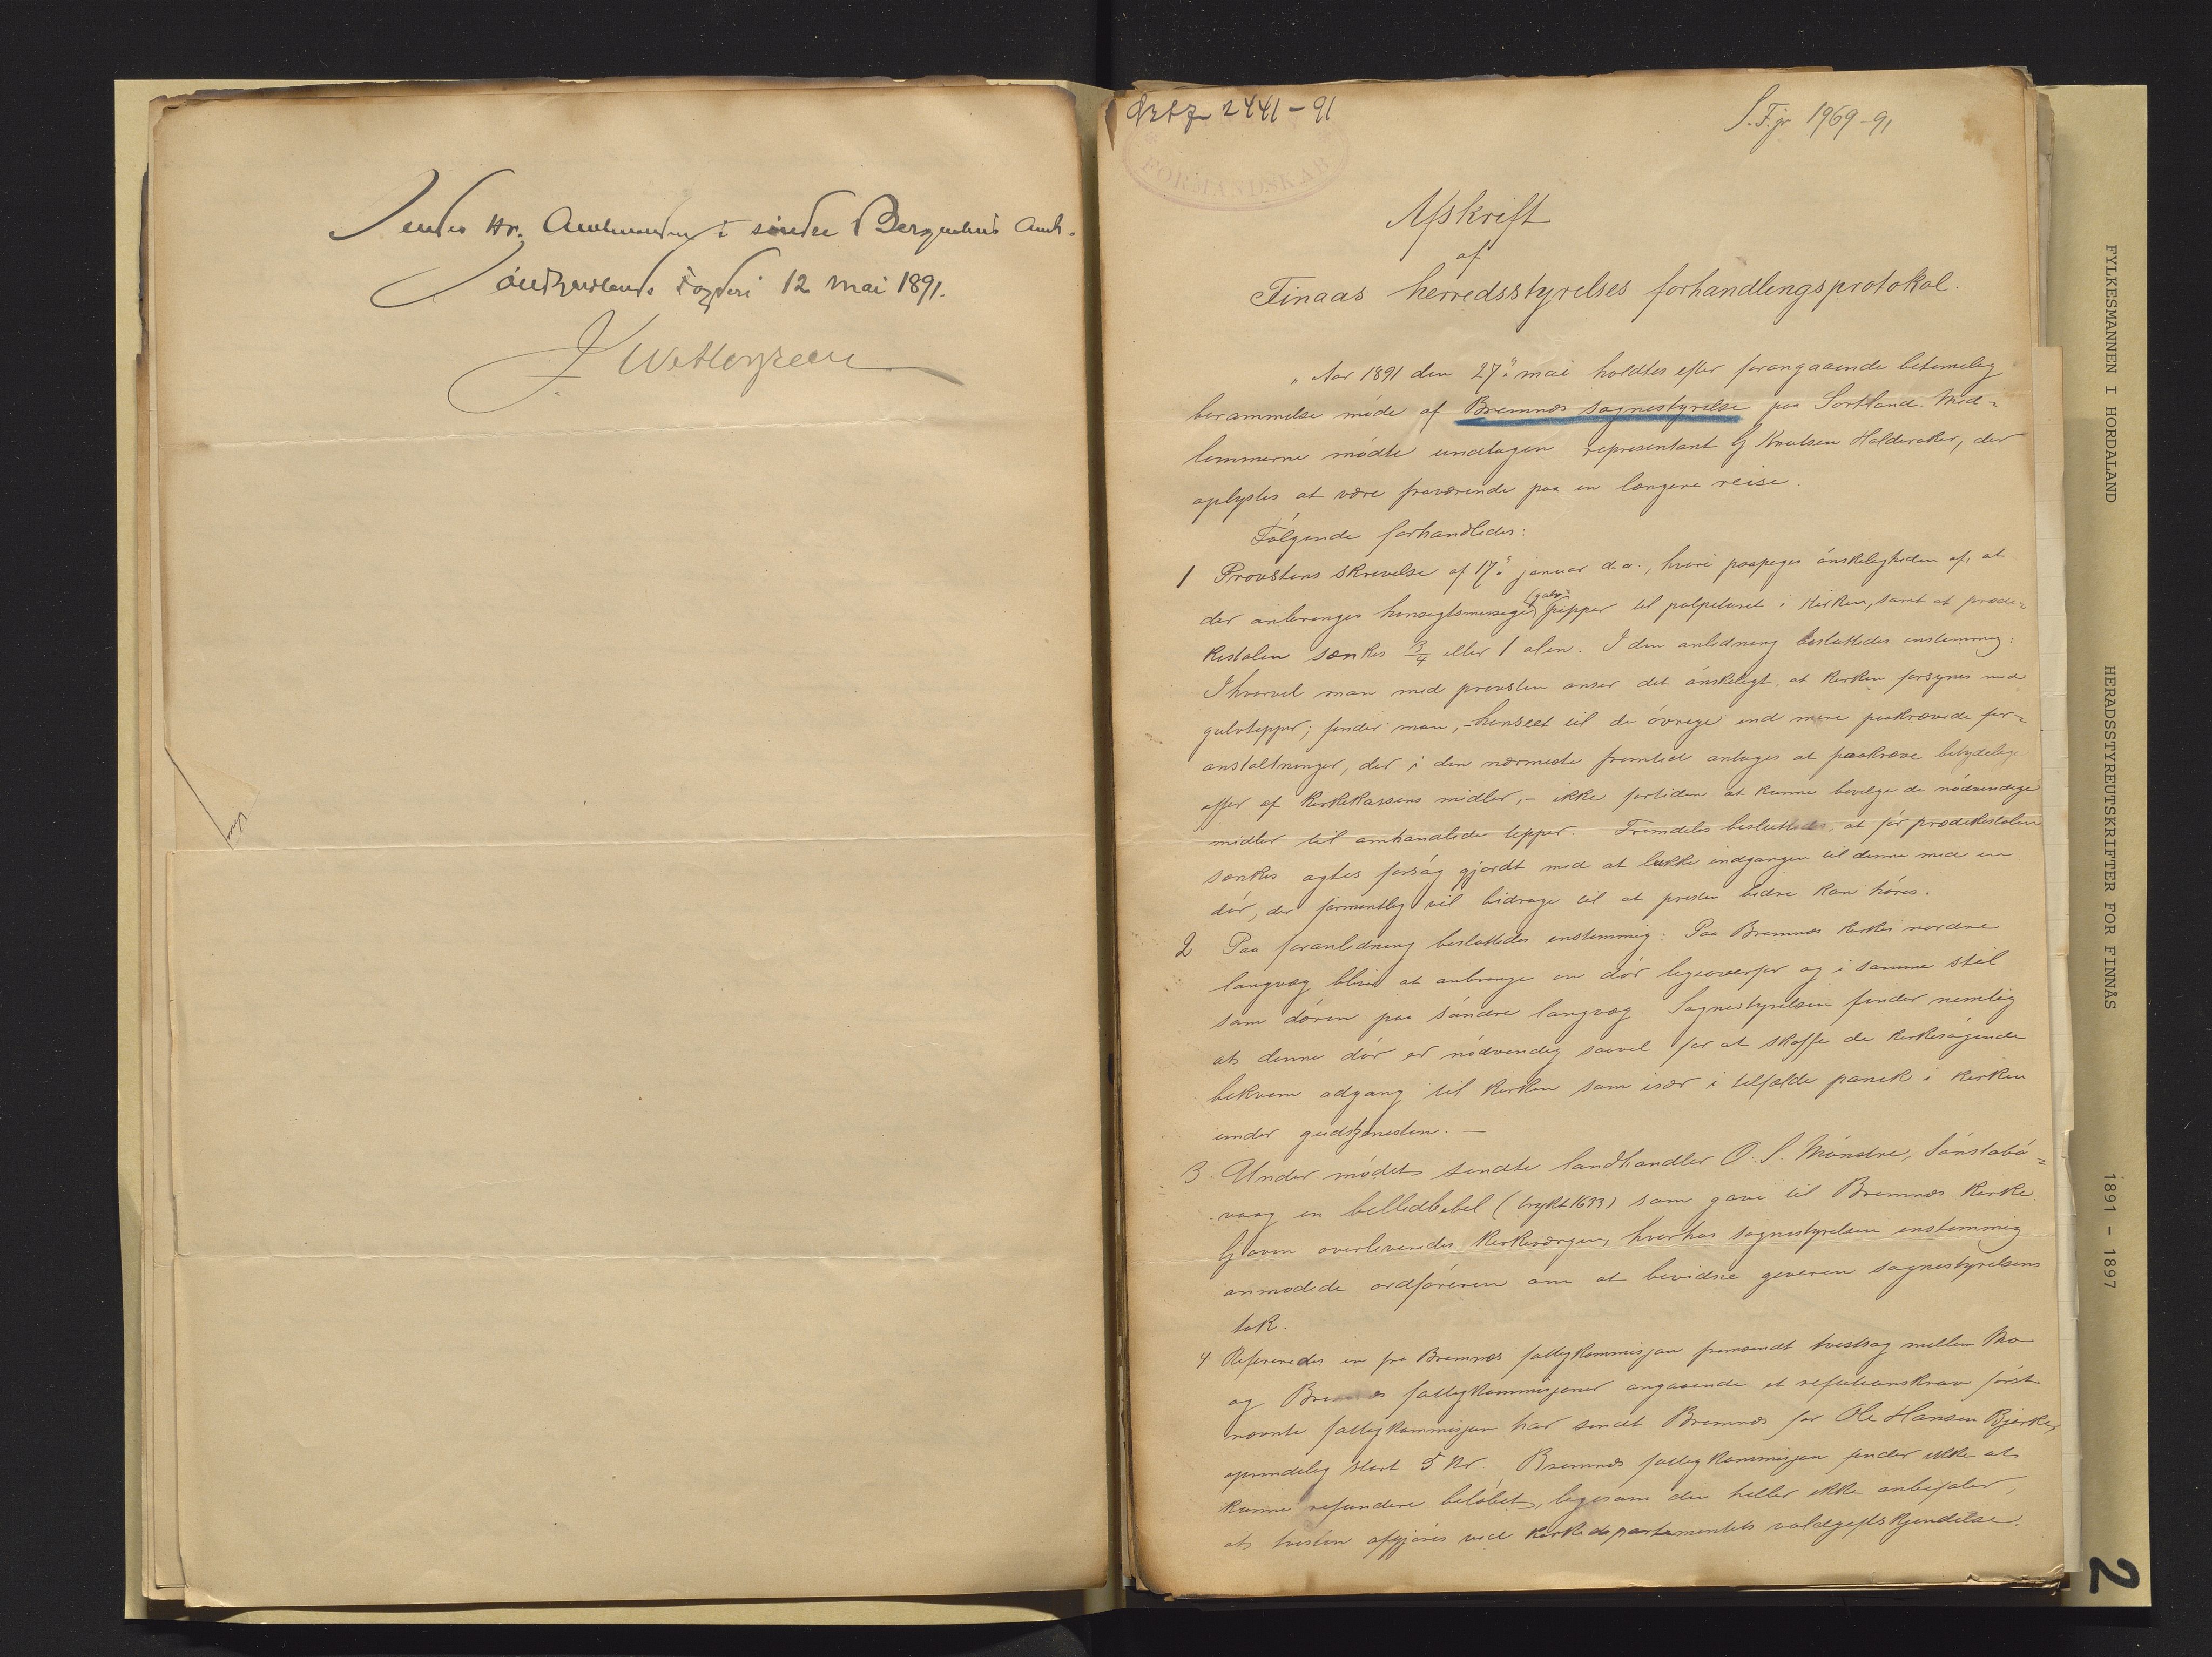 Sendes Hr. Amtmanden i søndre Bergenhus Amt.
Søndhordlands Fogderi 12 mai 1891.
J Wettergreen
2441-91
S.F.jr 1969-91
FORMANDSKAB
Afskrift
af
Finaas herredsstyrelses forhandlingsprotokol.
"Aar 1891 den 27de mai holdtes efter forangaaende betimelig
berammelse møde af Bremnæs sognestyrelse paa Sortland. Med-
lemmerne mødte undtagen repræsentant G Knutsen Halderaker, der
oplystes at være fraværende paa en længere reise.
Følgende forhandledes:
1 Provstens skrivelse af 17de januar d.a., hvori paapeges ønskeligheden af, at
der anbringes hensigtsmæssige (gulv-)tepper til pulpituret i kirken, samt at præde-
kestolen sænkes 3/4 eller 1 alen. I den anledning besluttedes enstemmig:
Ihvorvel man med provsten anser det ønskeligt, at kirken forsynes med
gulvtepper; finder man, - henseet til de øvrige end mere paakrævede for-
anstaltninger, der i den nærmeste fremtid antages at paakræve betydelige
offer af kirkekassens midler, - ikke fortiden at kunne bevilge de nødvendige
midler til omhandlede tepper. Fremdeles besluttedes, at før prædikestolen
sænkes agtes forsøg gjordt med at lukke indgangen til denne med en
dør, der formentlig vil bidrage til at presten bedre kan høres.
2 Paa foranledning besluttedes enstemmig: Paa Bremnæs kirkes nordre
langvæg bliver at anbringe en dør ligeoverfor og i samme stil
som døren paa søndre langvæg. Sognestyrelsen finder nemlig
at denne dør er nødvendig saavel for at skaffe de kirkesøgende
bekvem adgang til kirken som især i tilfælde panik i kirken
under gudstjenesten. —
3. Under mødet sendte landhandler O. S. Mønstre, Sønstabø-
vaag en billedbibel (trykt 1693) som gave til Bremnæs kirke.
Gaven overleveredes kirkeværgen, hvorhos sognestyrelsen enstemmig
anmodede ordføreren om at bevidne giveren sognestyrelsens
tak.
4 Refereredes en fra Bremnæs fattigkommisjon fremsendt tvistsag mellem Mo
og Bremnæs fattigkommisjoner angaaende et refusionskrav først
nævnte fattigkommisjon har sendt Bremnæs for Ole Hansen Bjerke,
oprindelig stort 5 Kr. Bremnæs fattigkommisjon finder ikke at
kunne refundere beløbet, ligesom den heller ikke anbefaler,
at tvisten afgjøres ved kirkedepartementets voldgiftskjendelse.
FYLKESMANNEN I HORDALAND HERADSSTYREUTSKRIFTER FOR FINNÅS 1891 - 1897
2